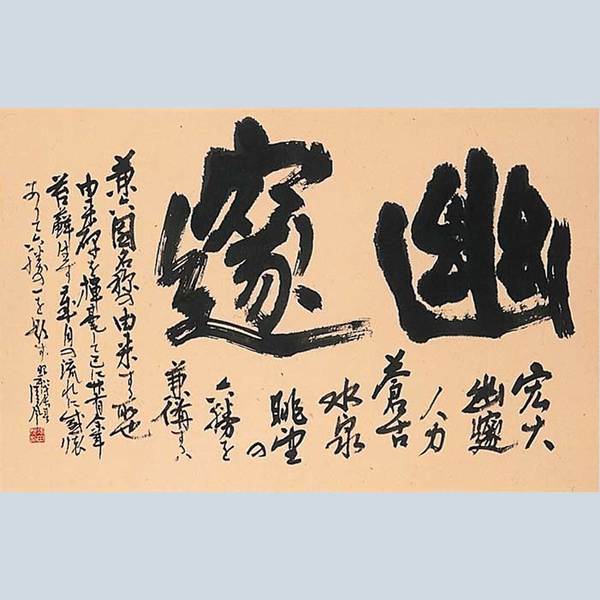 幽邃
宏大
幽邃
人力
蒼古
水泉
眺望の
六勝を
兼備する
兼六園名称の由来する所也
由来碑を揮毫して已に廿有余年
苔蘚生ず歳月の流れに感懐
ありて六勝の一を